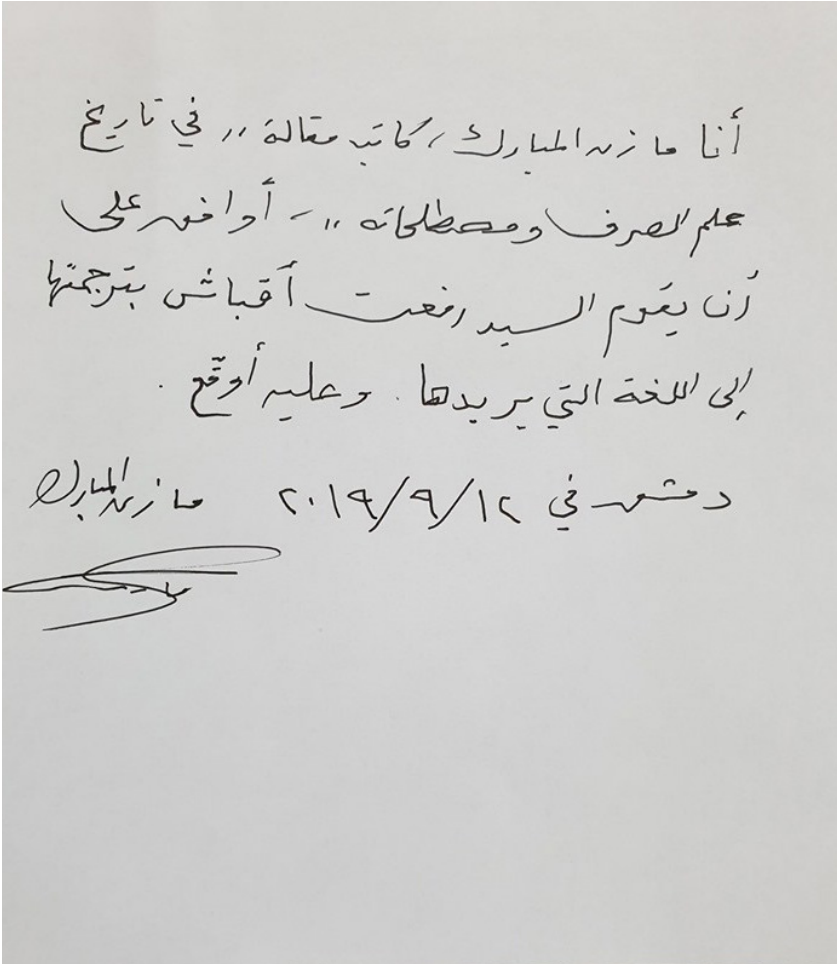 أنا مازن المبارك، كاتب مقالة ,, في تاريخ
علم الصرف ومصطلحاته ,, - أوافق على
أن يقوم السيد رفعت أقباش بترجمتها
إلى اللغة التي يريدها. وعليه أوقّع.
دمشق في ٢٠١٩/٩/١٢ مازن المبارك